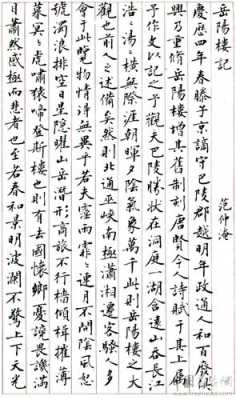 岳陽樓記 范仲淹
慶歷四年春滕子京謫守巴陵郡越明年政通人和百廢俱
興乃重修岳陽樓增其舊制刻唐賢今人詩賦于其上屬
予作文以記之予觀夫巴陵勝狀在洞庭一湖含遠山吞長江
浩〻湯〻橫無際涯朝暉夕陰氣象萬千此則岳陽樓之大
觀也前人之述備矣然則北通巫峽南極瀟湘遷客騷人多
會于此覽物情得無異乎若夫霪雨霏〻連月不開陰風怒
號濁浪排空日星隱曜山岳潛形商旅不行檣傾楫摧薄
暮冥〻虎嘯猿啼登斯樓也則有去國懷鄉憂讒畏譏滿
目蕭然感極而悲者也至若春和景明波瀾不驚上下天光